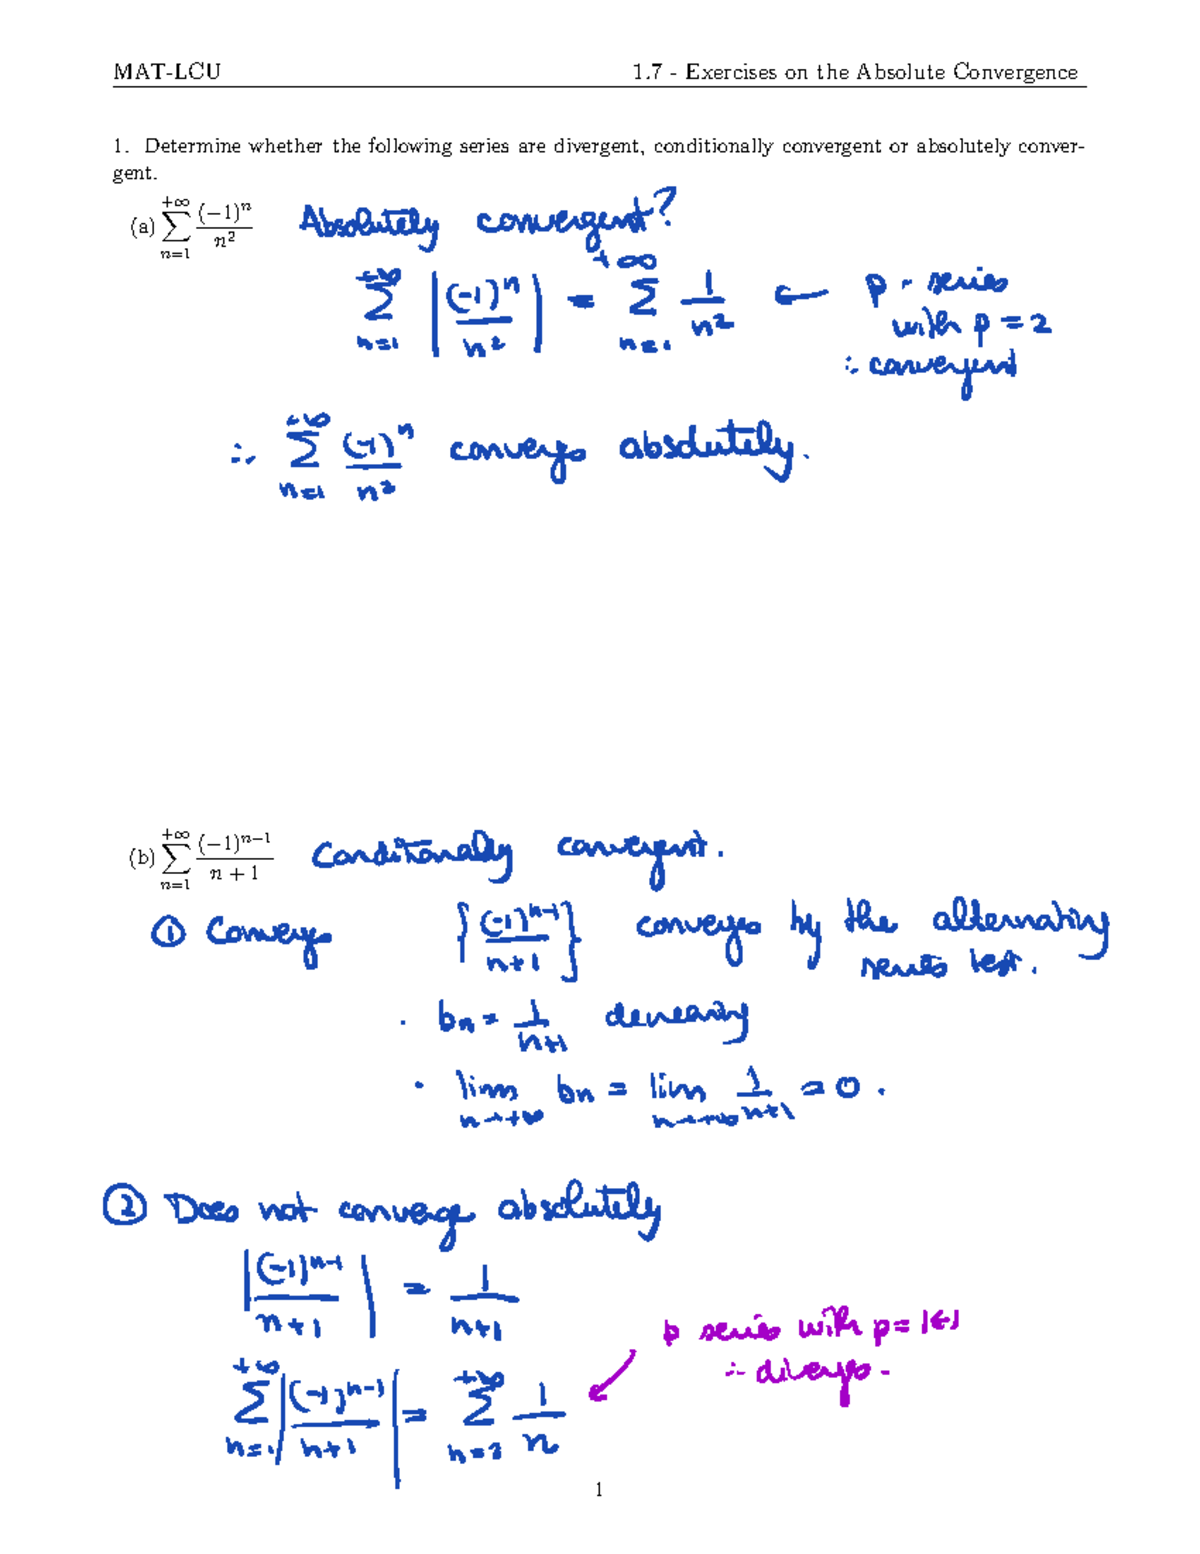 MAT-LCU 1.7 - Exercises on the Absolute Convergence
1. Determine whether the following series are divergent, conditionally convergent or absolutely conver-
gent.
(a) ∑_{n=1}^{+∞} (−1)^n / n^2 Absolutely convergent?
∑_{n=1}^{+∞} |(-1)^n / n^2| = ∑_{n=1}^{+∞} 1/n^2 ← p-series
with p = 2
∴ convergent
∴ ∑_{n=1}^{+∞} (-1)^n / n^2 converges absolutely.
(b) ∑_{n=1}^{+∞} (−1)^{n−1} / (n + 1) Conditionally convergent.
① Converges { (-1)^{n-1} / (n+1) } converges by the alternating
series test.
· bn = 1/(n+1) decreasing
· lim_{n→+∞} bn = lim_{n→+∞} 1/(n+1) = 0.
② Does not converge absolutely
|(-1)^{n-1} / (n+1)| = 1/(n+1)
p series with p = 1
∴ diverges.
∑_{n=1}^{+∞} |(-1)^{n-1} / (n+1)| = ∑_{n=2}^{+∞} 1/n
1